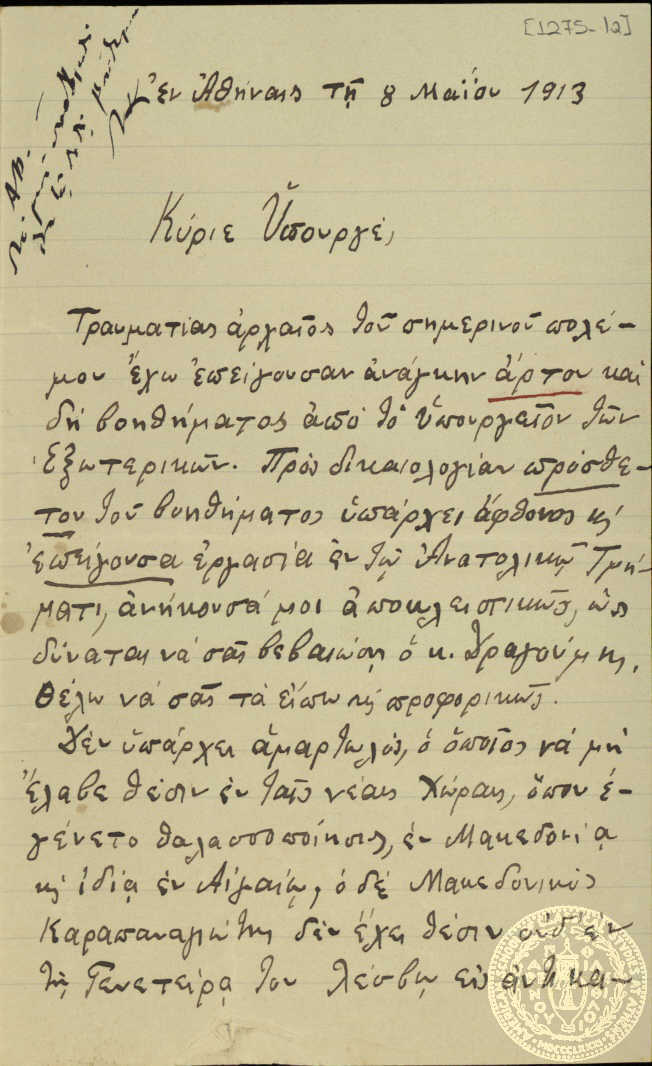 [1275-12]
Ἐν Ἀθήναις τῇ 8 Μαΐου 1913
Κύριε Ὑπουργέ,
Τραυματίας ἀρχαῖος τοῦ σημερινοῦ πολέ-
μου ἔχω ἐπείγουσαν ἀνάγκην ἄρτου καὶ
δὴ βοηθήματος ἀπὸ τὸ Ὑπουργεῖον τῶν
Ἐξωτερικῶν. Πρὸς δικαιολογίαν προσθέ-
του τοῦ βοηθήματος ὑπάρχει ἄφθονος κ̀
ἐπείγουσα ἐργασία ἐν τῷ Ἀνατολικῷ Τμή-
ματι, ἀνήκουσά μοι ἀποκλειστικῶς, ὡς
δύναται νὰ σᾶς βεβαιώσῃ ὁ κ. Δραγούμης.
Θέλω νὰ σᾶς τὰ εἴπω κ̀ προφορικῶς.
Δὲν ὑπάρχει ἁμαρτωλός, ὁ ὁποῖος νὰ μὴ
ἔλαβε θέσιν ἐν ταῖς νέαις Χώραις, ὅπου ἐ-
γένετο θαλασσοποίησις, ἐν Μακεδονίᾳ
κ̀ ἰδίᾳ ἐν Αἰγαίῳ, ὁ δὲ Μακεδονικὸς
Καραπαναγιώτης δὲν ἔχει θέσιν οὐδ' ἐν
τῇ Γενετείρᾳ του Λέσβῳ εἰς ἀντικα-